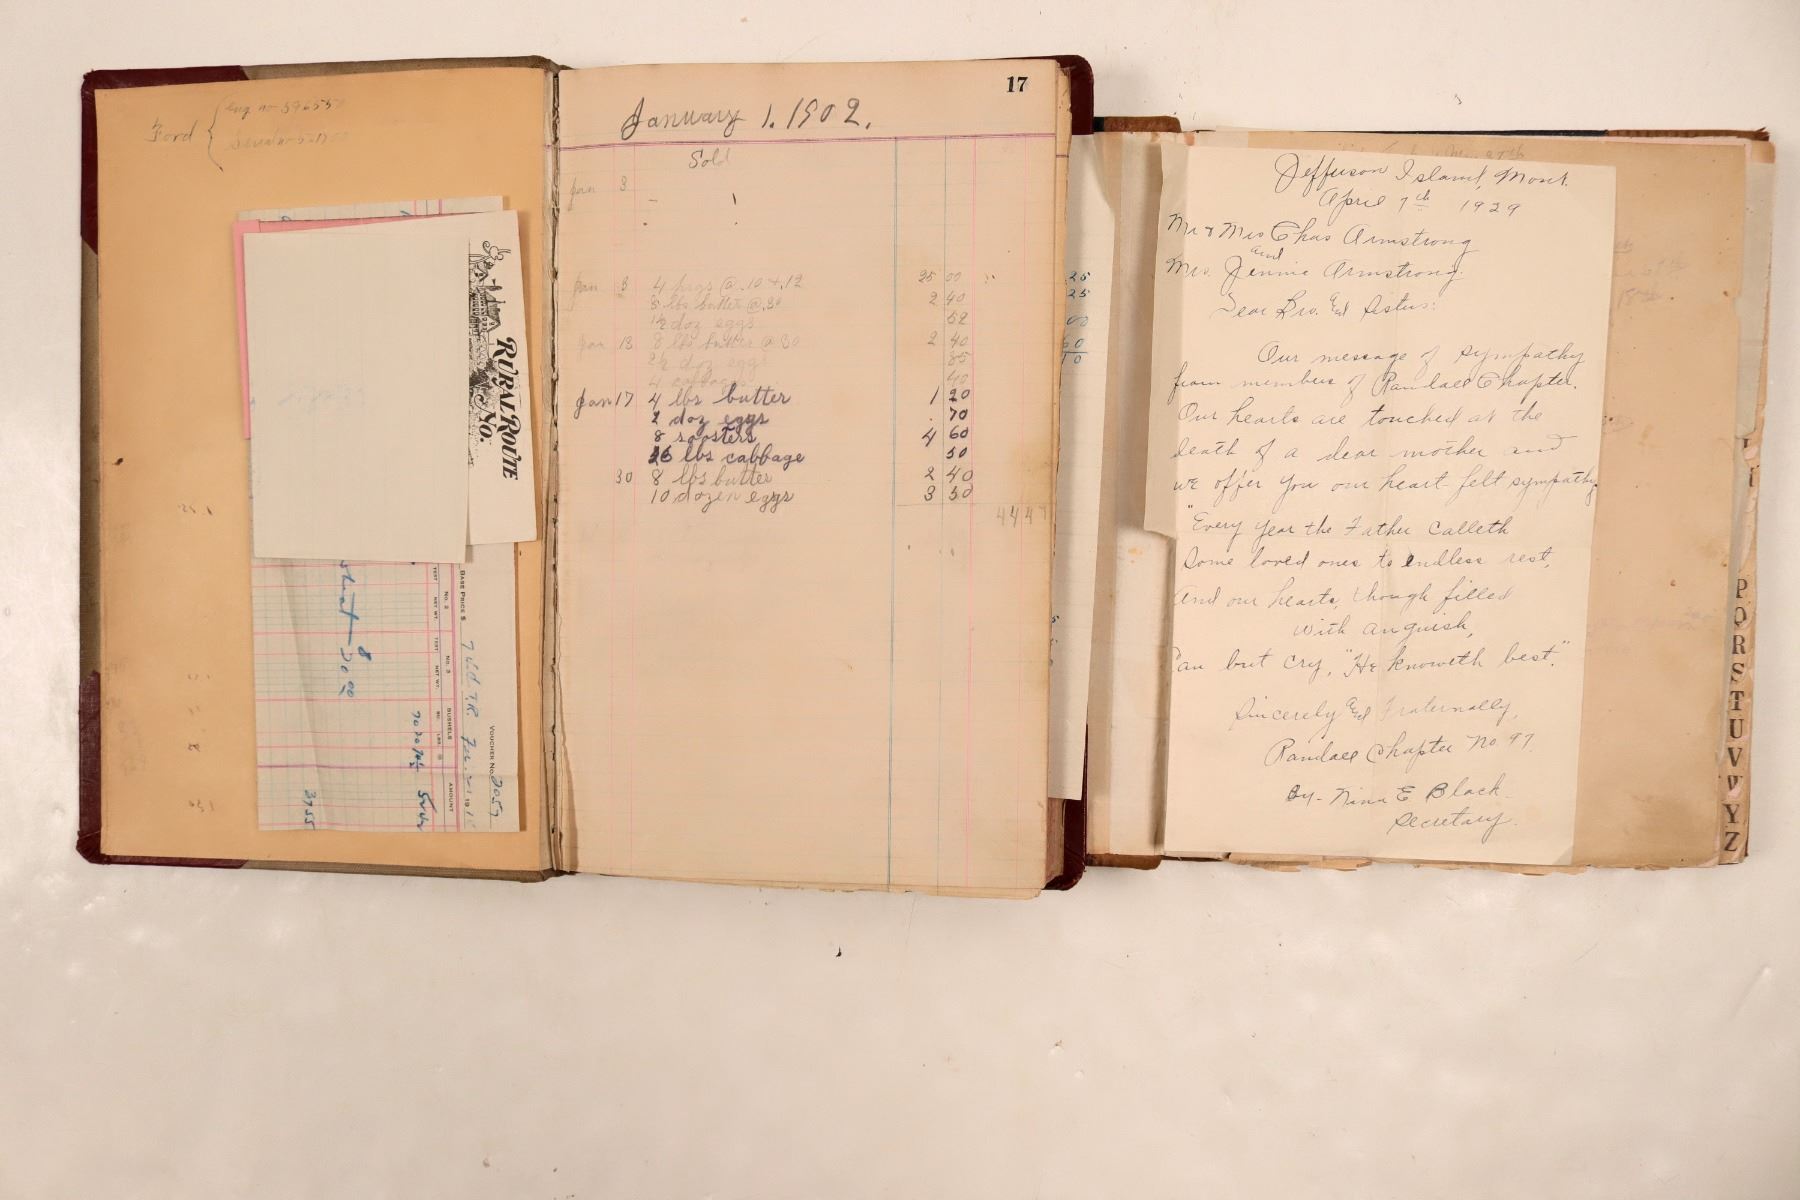 Ford { eng no 596550
Serial no
RURAL ROUTE
No.
BASE PRICE $
No. 2
TEST
NET WT.
No. 3
TEST
NET WT.
BUSHELS
NO.
LBS.
AMOUNT
VOUCHER No. 2059
3755
17
January 1. 1902.
Sold
Jan 3
Jan 3 4 hogs @ .10 + .12 35 00
8 lbs butter @ .30 2 40
1½ doz eggs 52
Jan 13 8 lbs butter @ 30 2 40
2½ doz eggs 85
4 cabbages 40
Jan 17 4 lbs butter 1 20
2 doz eggs . 70
8 roosters 4 60
lbs cabbage 50
30 8 lbs butter 2 40
10 dozen eggs 3 50
25
25
00
60
10
Jefferson Island, Mont.
April 7th 1929
Mr & Mrs Chas Armstrong
and
Mrs. Jennie Armstrong.
Dear Bro. and Sisters:
Our message of sympathy
from members of Randall Chapter.
Our hearts are touched at the
death of a dear mother and
we offer you our heart felt sympathy
"Every year the Father calleth
Some loved ones to endless rest,
And our hearts, though filled
with anguish,
Can but cry, "He knoweth best."
Sincerely and Fraternally,
Randall Chapter No. 97.
By- Nina E Black
Secretary.
P
Q
R
S
T
U
V
W
Y
Z